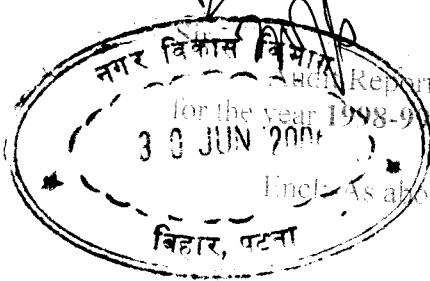 नगर विकास विभाग
Audit Report
for the year 1998-99
30 JUN
Encl: As abo
बिहार, पटना